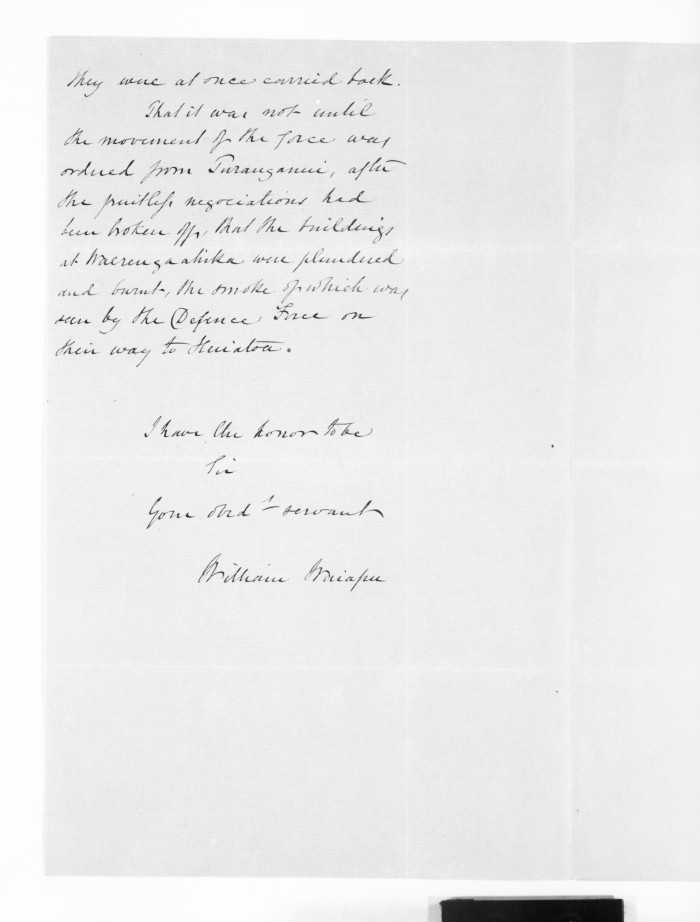 they were at once carried back.
That it was not until
the movement of the force was
ordered from Turanganui, after
the fruitless negociations had
been broken off, that the buildings
at Waerengaahika were plundered
and burnt, the smoke of which was
seen by the Defence Force on
their way to
I have the honor to be
Sir
Your obedt servant
William Waiapu